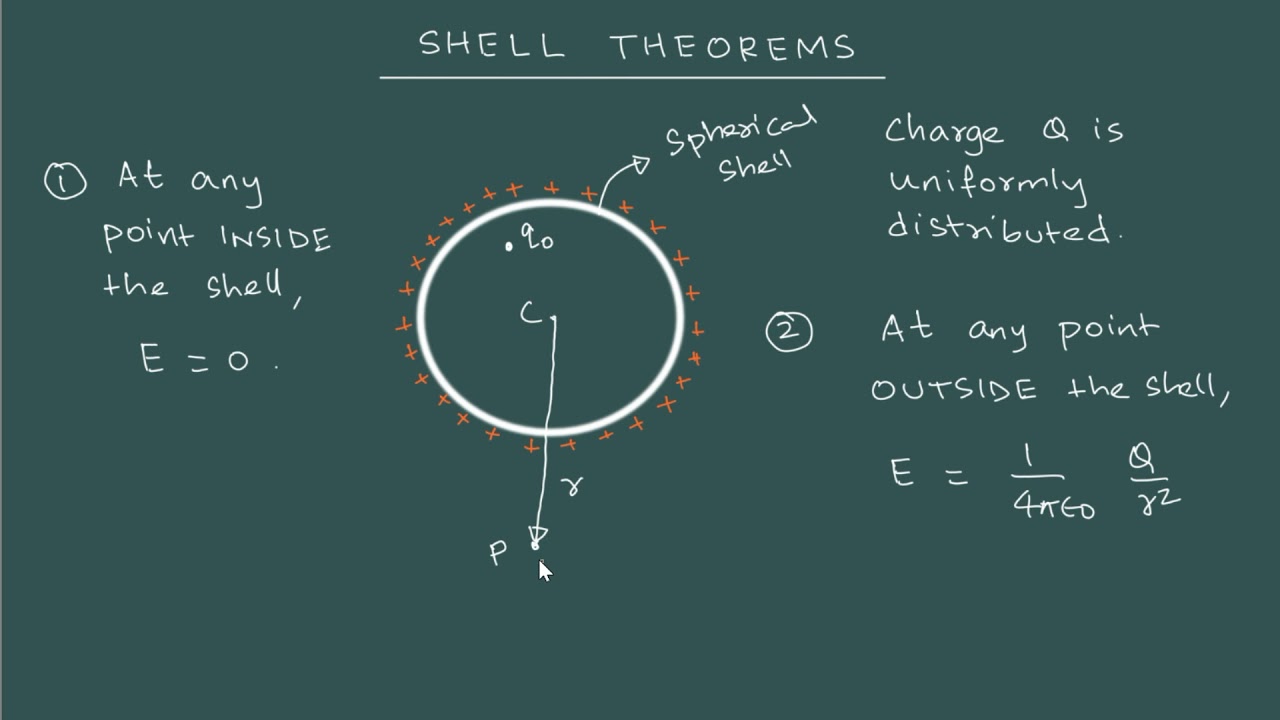 SHELL THEOREMS
① At any
point INSIDE
the shell,
E = 0.
Spherical
shell
q₀
C
r
P
Charge Q is
uniformly
distributed.
② At any point
OUTSIDE the shell,
E = 1/4πϵ₀ Q/r²